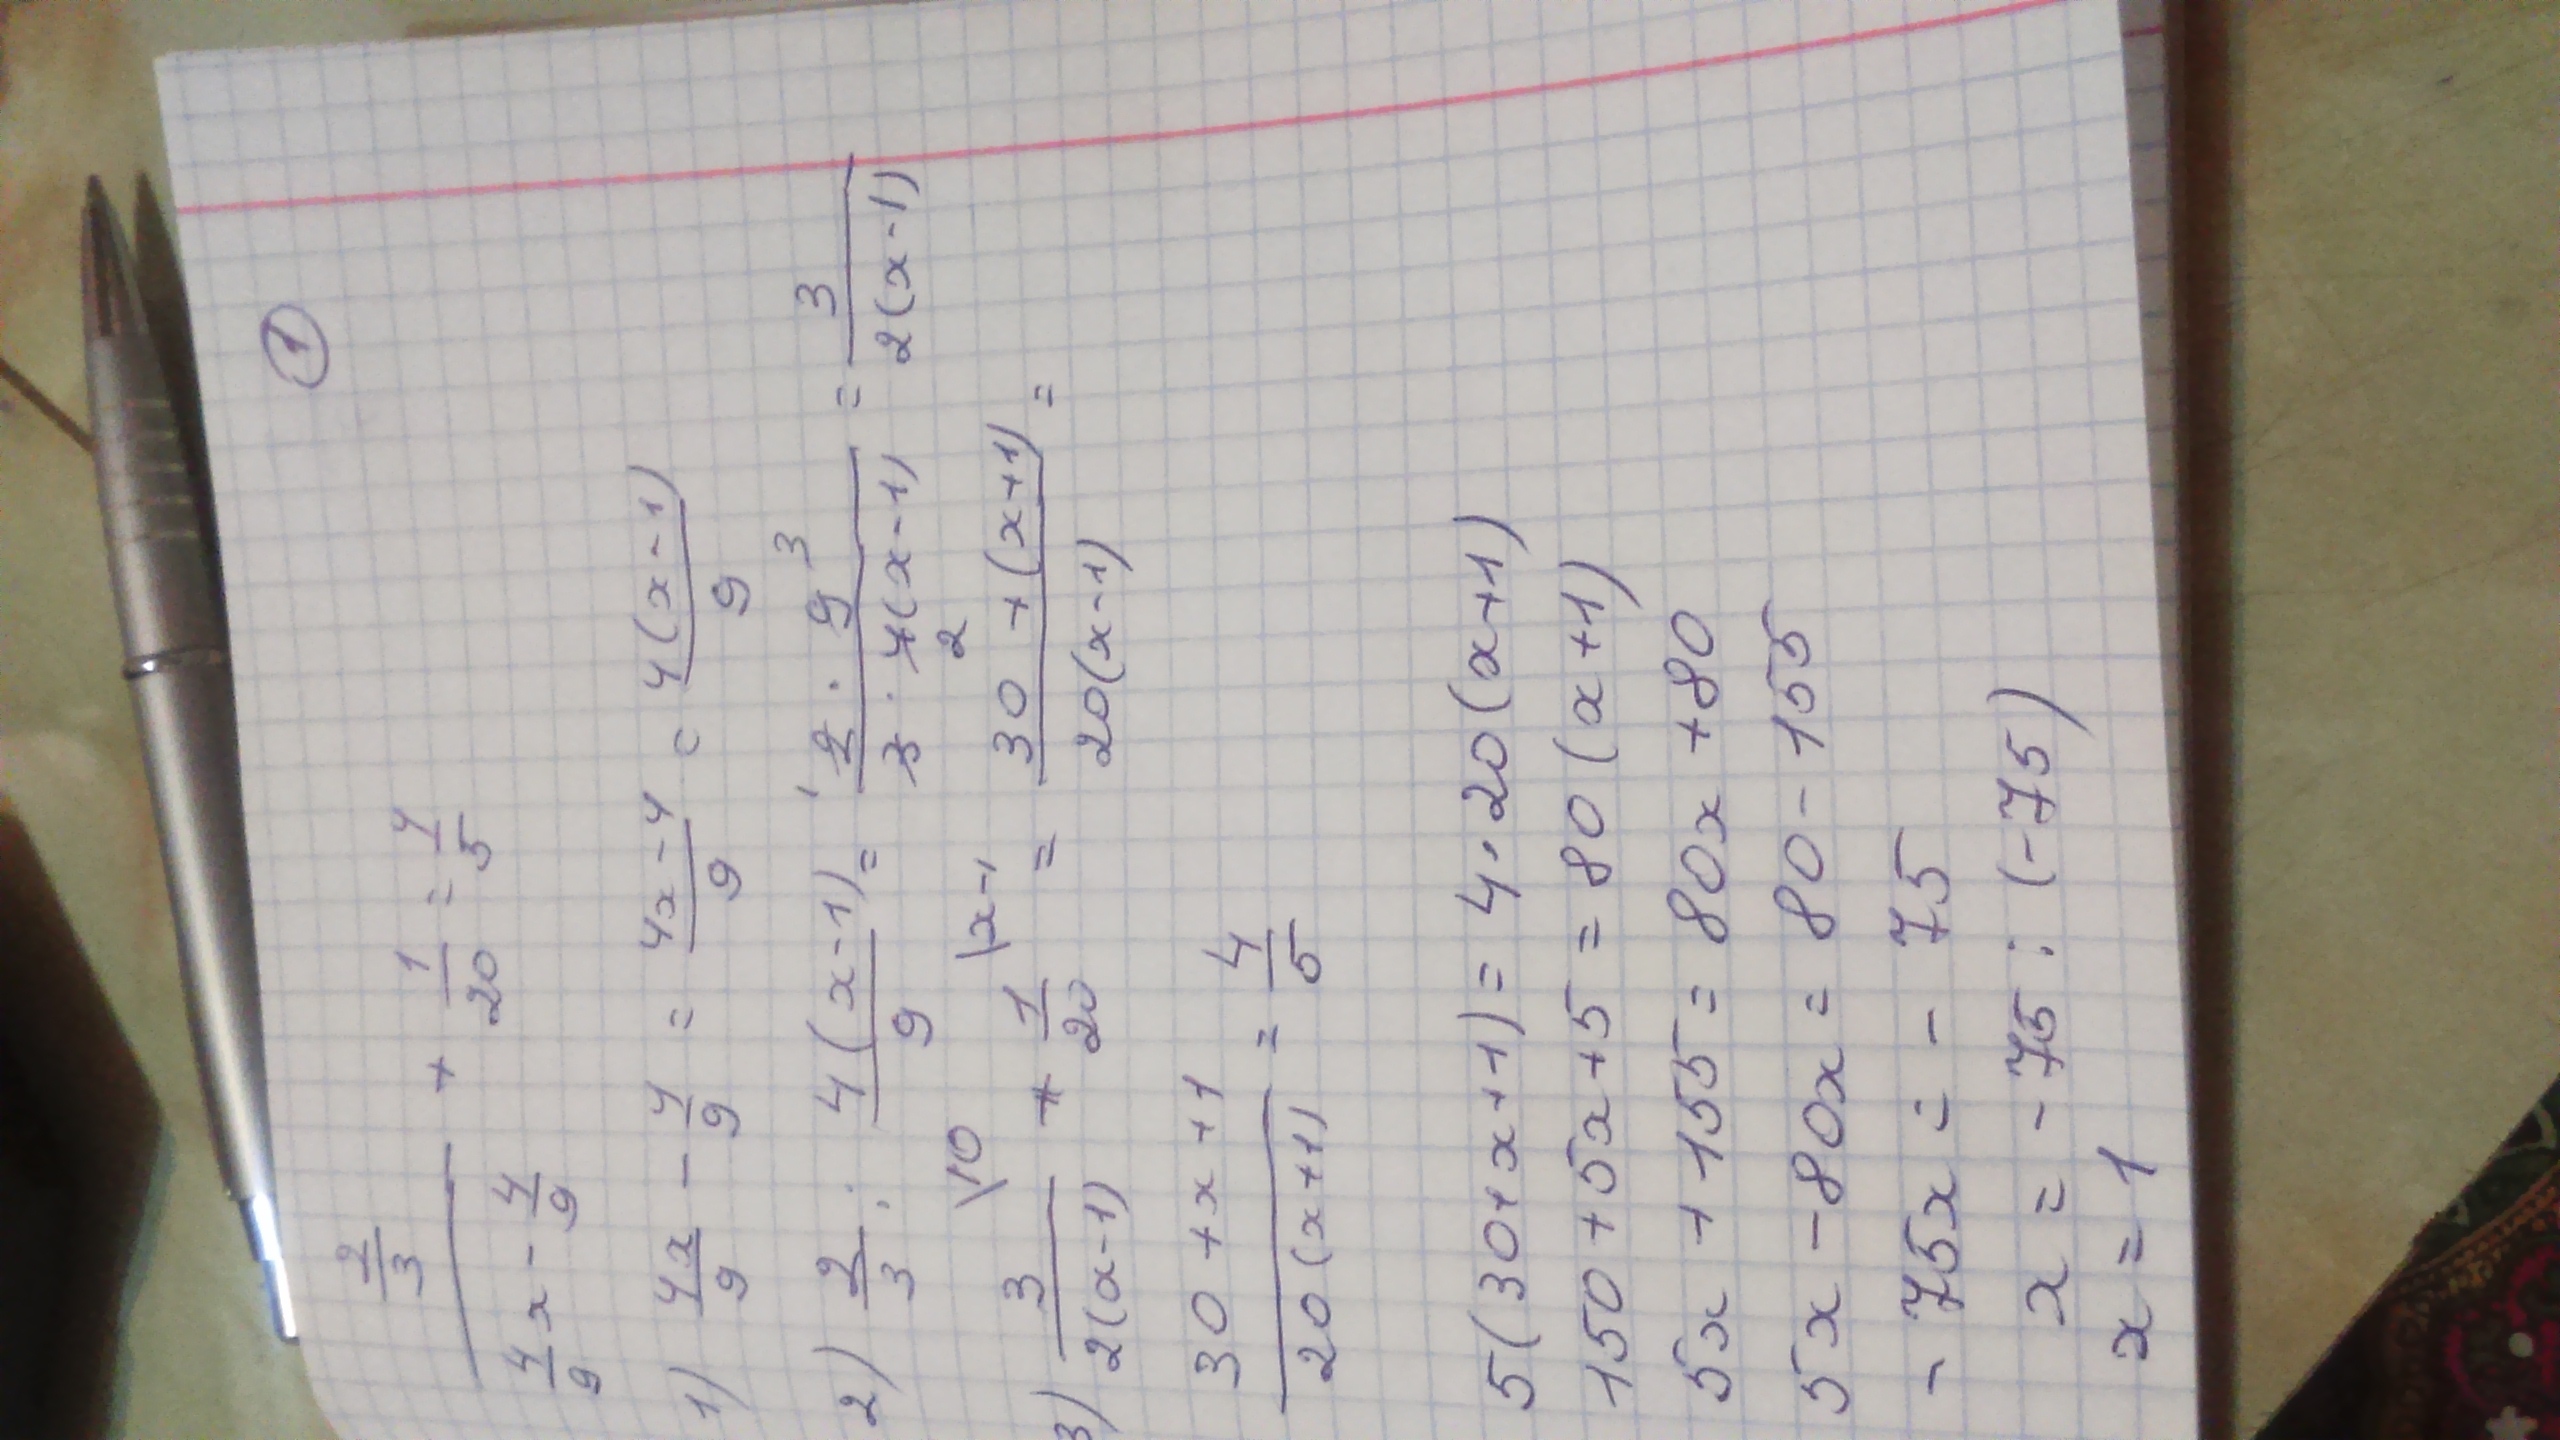 1
2/3 / (4/9 x - 4/9) + 1/20 = 4/5
1) 4x/9 - 4/9 = (4x-4)/9 = 4(x-1)/9
2) 2/3 : 4(x-1)/9 = (2 · 9)/(3 · 4(x-1)) = 3/(2(x-1))
3) 3/(2(x-1)) \10 + 1/20 \x-1 = (30 + (x+1))/(20(x-1)) =
(30+x+1)/(20(x+1)) = 4/5
5(30+x+1) = 4·20(x+1)
150+5x+5 = 80(x+1)
5x+155 = 80x+80
5x-80x = 80-155
-75x = -75
x = -75 : (-75)
x = 1